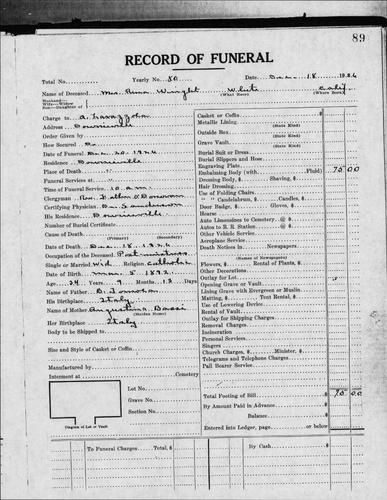 89
RECORD OF FUNERAL
Total No. Yearly No. 50 Date Dec. 18 1926
Name of Deceased Mrs. Wright White Calif.
(What Race) (Where Born)
Husband—
Wife—Widow
Son—Daughter of
Charge to A. Lavezzola
Address Downieville
Order Given by
How Secured
Date of Funeral Dec. 20. 1926
Residence Downieville
Place of Death "
Funeral Services at "
Time of Funeral Service 10 a.m.
Clergyman Rev. Father O'
Certifying Physician
His Residence Downieville
Number of Burial Certificate
Cause of Death
(Primary) (Secondary)
Date of Death Dec. 18. 1926
Occupation of the Deceased Postmistress
Single or Married Wid Religion Catholic
Date of Birth Mar. 5 1892
Age 34 Years 9 Months 13 Days
Name of Father
His Birthplace Italy
Name of Mother Angustina
(Maiden Name)
Her Birthplace Italy
Body to be Shipped to
Size and Style of Casket or Coffin
Manufactured by
Interment at Cemetery
Lot No.
Grave No.
Section No.
Diagram of Lot or Vault
Casket or Coffin
Metallic Lining
(State Kind)
Outside Box
(State Kind)
Grave Vault
(State Kind)
Burial Suit or Dress
Burial Slippers and Hose
Engraving Plate
Embalming Body (with Fluid) 75 00
Dressing Body, $ Shaving, $
Hair Dressing
Use of Folding Chairs
" " Candelabrum, $ Candles, $
Door Badge, $ Gloves, $
Hearse
Auto Limousines to Cemetery @ $
Autos to R. R. Station @ $
Other Vehicle Service
Aeroplane Service
Death Notices in Newspapers
(Names of Newspapers)
Flowers, $ Rental of Plants, $
Other Decorations
Outlay for Lot
Opening Grave or Vault
Lining Grave with Evergreen or Muslin
Matting, $ Tent Rental, $
Use of Lowering Device
Rental of Vault
Outlay for Shipping Charges
Removal Charges
Incineration
Personal Services
Singers
Church Charges, $ Minister, $
Telegrams and Telephone Charges
Pall Bearer Service
Total Footing of Bill $ 75 00
By Amount Paid in Advance
Balance
Entered into Ledger, page or below
To Funeral Charges Total $ By Cash $